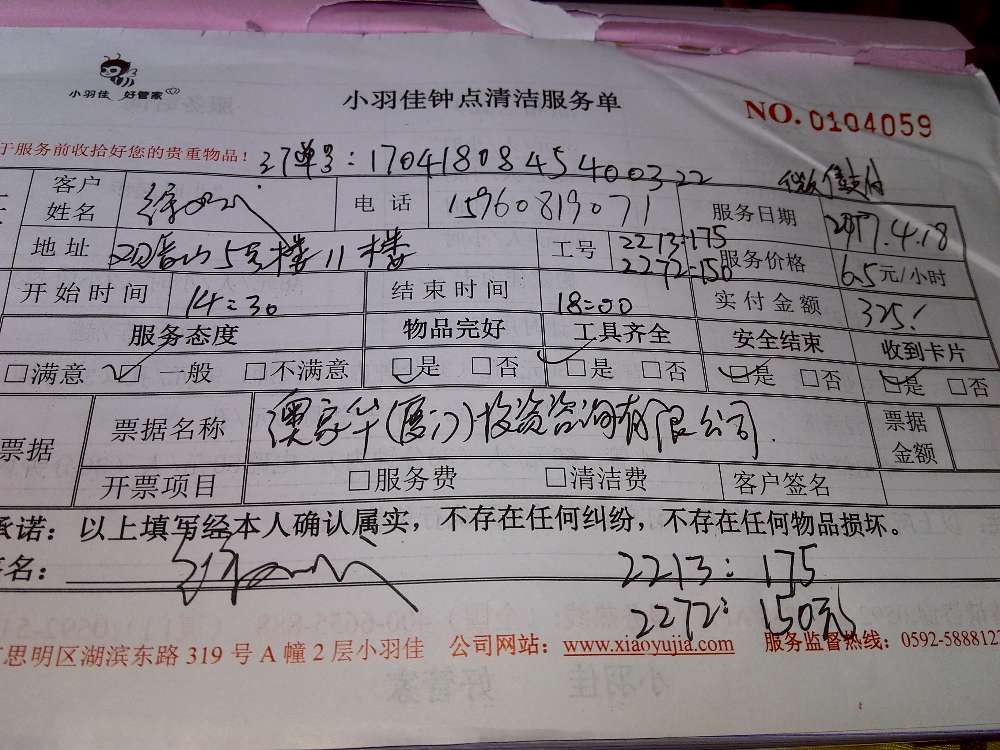 小羽佳 好管家
小羽佳钟点清洁服务单
NO. 0104059
于服务前收拾好您的贵重物品！
订单号：17041808454000322
微信支付
客户姓名 徐 电话 15960819071 服务日期 2017.4.18
地址 5号楼11楼 工号 2213:175 2272:150 服务价格 65元/小时
开始时间 14:30 结束时间 18:00 实付金额 325
服务态度 物品完好 工具齐全 安全结束 收到卡片
□满意 □一般 □不满意 □是 □否 □是 □否 □是 □否 □是 □否
票据 票据名称 澳家华(厦门)投资咨询有限公司 票据金额
开票项目 □服务费 □清洁费 客户签名
承诺：以上填写经本人确认属实，不存在任何纠纷，不存在任何物品损坏。
签名：
2213：175
2272：150元
思明区湖滨东路319号A幢2层小羽佳 公司网站：www.xiaoyujia.com 服务监督热线：0592-588812